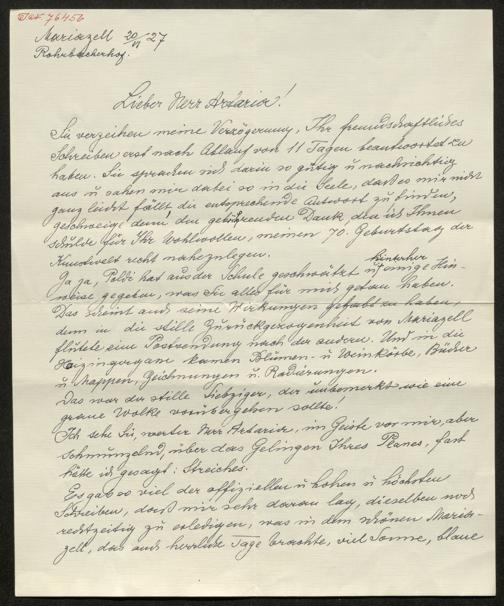 76456
Mariazell 20/VI '27
Rohrbacherhof.
Lieber Herr Artaria!
Sie verzeihen meine Verzögerung, Ihr freundschaftliches
Schreiben erst nach Ablauf von 11 Tagen beantwortet zu
haben. Sie sprachen sich darin so gütig u nachsichtig
aus u sahen mir dabei so in die Seele, daß es mir nicht
ganz leicht fällt die entsprechende Antwort zu finden,
geschweige denn den gebührenden Dank, den ich Ihnen
schulde für Ihr Wohlwollen, meinen 70. Geburtstag der
Kunstwelt recht nahezulegen.
Ja ja, Poldi hat aus der Schule geschwätzt u hinterher famose Hin-
weise gegeben, was Sie alles für mich getan haben.
Das scheint auch seine Wirkungen gehabt zu haben,
denn in die stille Zurückgezogenheit von Mariazell
flutete eine Postsendung nach der andern. Und in die
kamen Blumen- u Weinkörbe, Bücher
u. Mappen, Zeichnungen u. Radierungen.
Das war der stille Siebziger, der unbemerkt wie eine
graue Wolke vorübergehen sollte!
Ich sehe Sie, werter Herr Artaria, im Geiste vor mir, aber
schmunzelnd, über das Gelingen Ihres Planes, fast
hätte ich gesagt: Streiches.
Es gab so viel der offiziellen u hohen u höchsten
Schreiben, daß mir sehr daran lag, dieselben noch
rechtzeitig zu erledigen, was in dem schönen Maria-
zell, das auch herrliche Tage brachte, viel Sonne, blaue